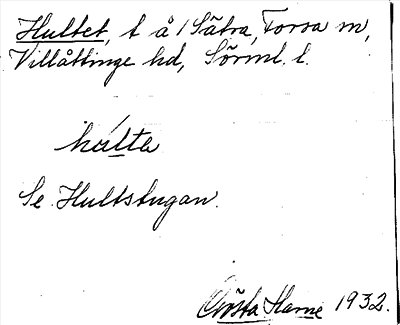 Hultet, t å 1 Sätra, Forsa sn,
Villåttinge hd, Sörml. l.
hulte
Se Hultstugan.
Gösta Harne 1932.